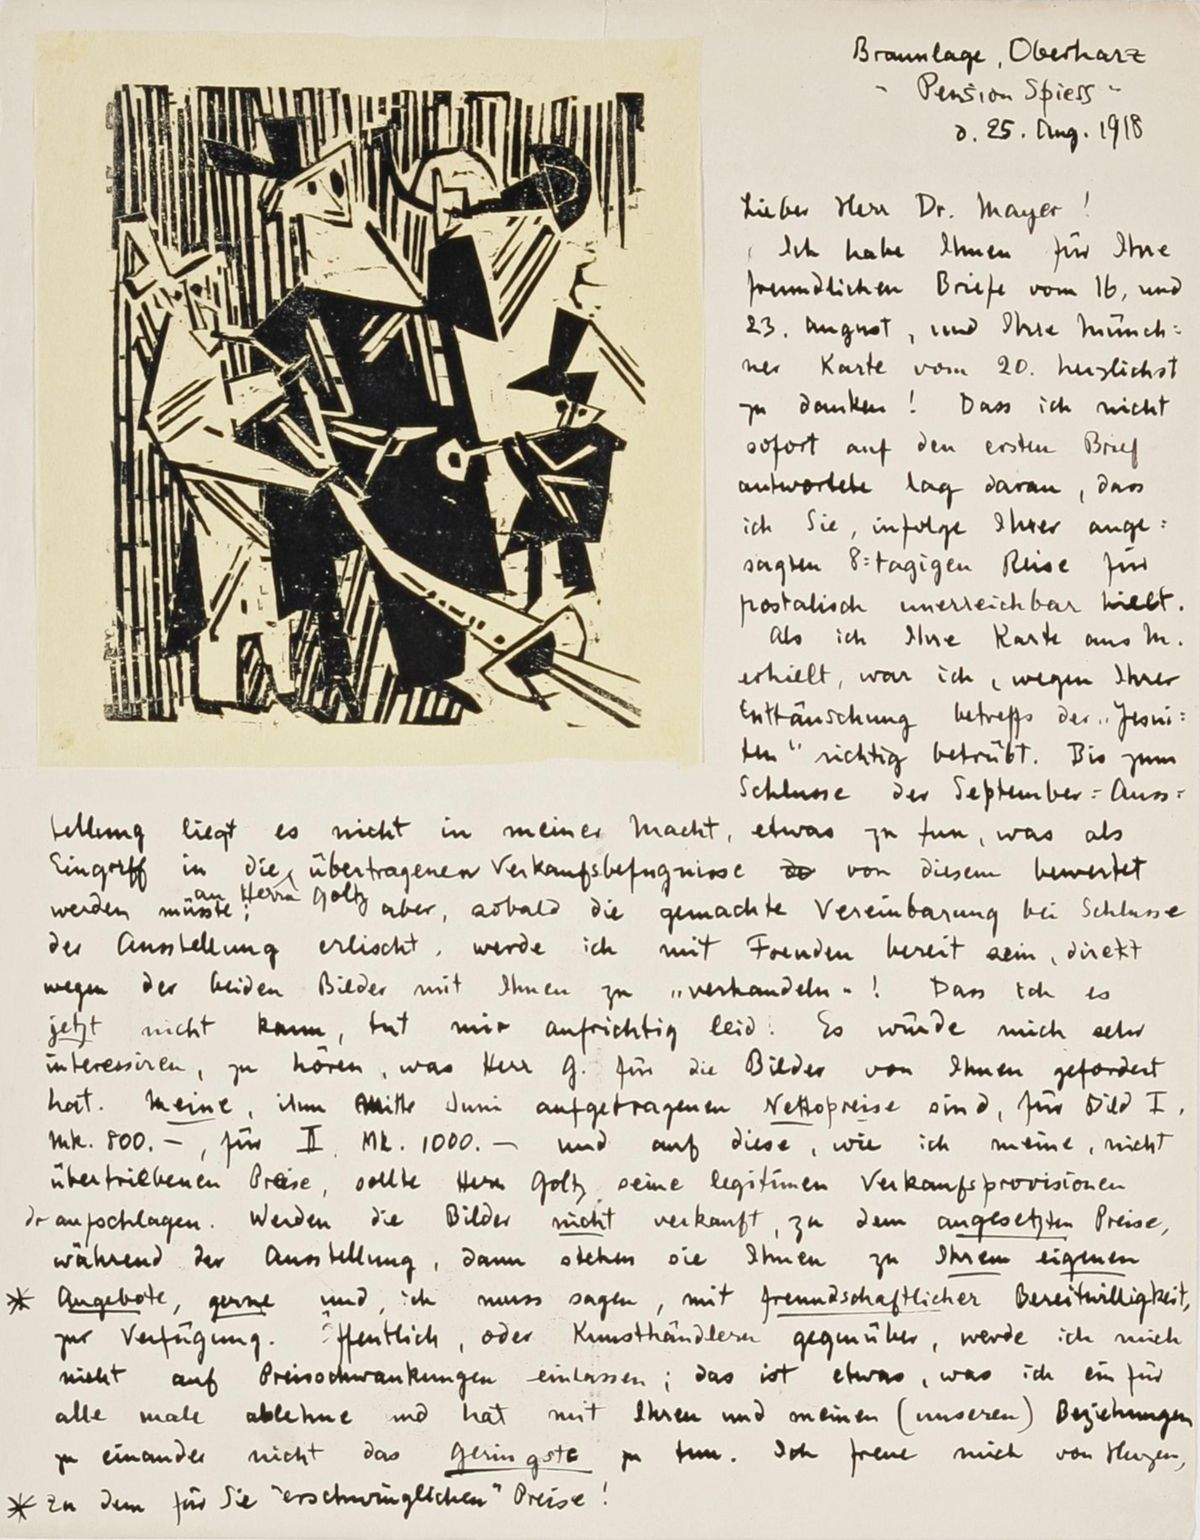 Braunlage, Oberharz
- Pension Spiess -
d. 25. Aug. 1918
Lieber Herr Dr. Mayer!
Ich habe Ihnen für Ihre
freundlichen Briefe vom 16. und
23. August, und Ihre Münch=
ner Karte vom 20. herzlichst
zu danken! Dass ich nicht
sofort auf den ersten Brief
antwortete lag daran, dass
ich Sie, infolge Ihrer ange=
sagten 8=tagigen Reise für
postalisch unerreichbar hielt.
Als ich Ihre Karte aus M.
erhielt, war ich, wegen Ihrer
Enttäuschung betreffs der „Jesui=
ten“ richtig betrübt. Bis zum
Schlusse der September=Auss=
tellung liegt es nicht in meiner Macht, etwas zu tun, was als
Eingriff in die übertragenen Verkaufsbefugnisse von diesem bewertet
an Herrn Goltz
werden müsste; aber, sobald die gemachte Vereinbarung bei Schlusse
der Ausstellung erlischt, werde ich mit Freuden bereit sein, direkt
wegen der beiden Bilder mit Ihnen zu „verhandeln“! Dass ich es
jetzt nicht kann, tut mir aufrichtig leid! Es würde mich sehr
interessiren, zu hören, was Herr G. für die Bilder von Ihnen gefordert
hat. Meine, ihm Mitte Juni aufgetragenen Nettopreise sind, für Bild I.
Mk. 800.–, für II Mk. 1000.– und auf diese, wie ich meine, nicht
übertriebenen Preise, sollte Herr Goltz seine legitimen Verkaufsprovisionen
draufschlagen. Werden die Bilder nicht verkauft, zu dem angesetzten Preise,
während der Ausstellung, dann stehen sie Ihnen zu Ihrem eigenen
* Angebote, gerne und, ich muss sagen, mit freundschaftlicher Bereitwilligkeit,
zur Verfügung. Öffentlich, oder Kunsthändlern gegenüber, werde ich mich
nicht auf Preisschwankungen einlassen; das ist etwas, was ich ein für
alle male ablehne und hat mit Ihren und meinen (unseren) Beziehungen
zu einander nicht das Geringste zu tun. Ich freue mich von Herzen,
* zu dem für Sie "erschwinglichen" Preise!